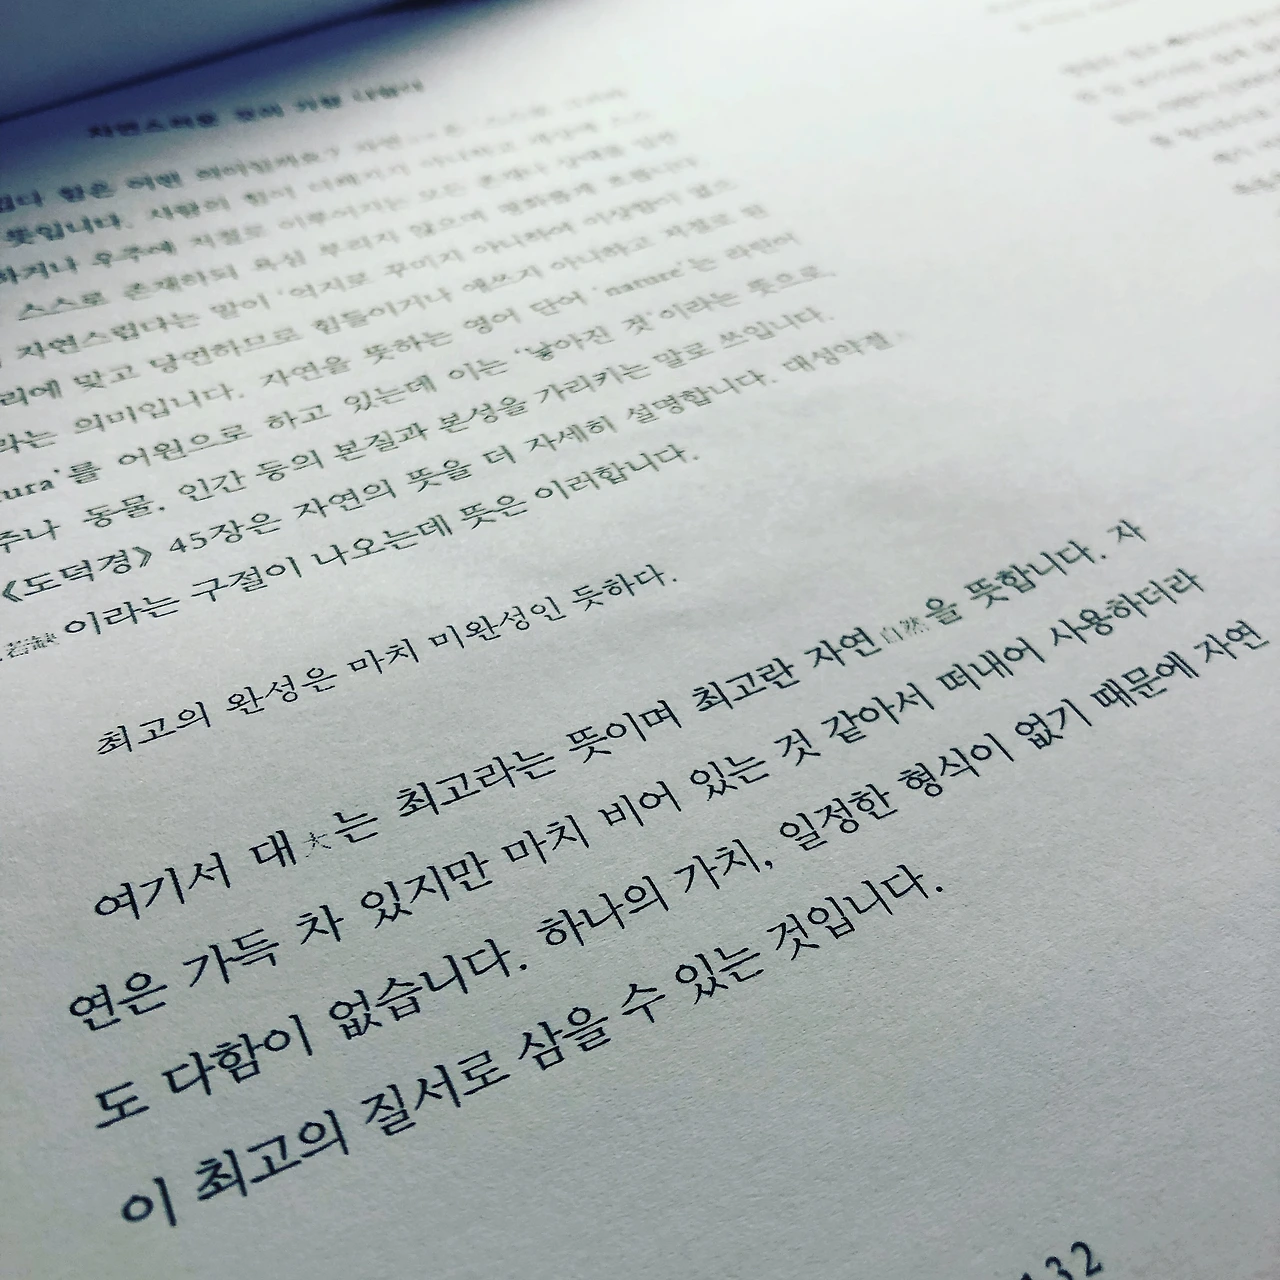 자연스러움
럽다 함은 어떤
뜻입니다. 사람의 힘이 더해지지 아니하고
하거나 우주에 저절로 이루어지는 모든 존재나 상태를
스스로 존재하되 욕심 부리지 않으며 평화롭게
자연스럽다는 말이 '억지로 꾸미지 아니하여 이상함이 없으
리에 맞고 당연하므로 힘들이거나 애쓰지 아니하고 저절로 된
라는 의미입니다. 자연을 뜻하는 영어 단어 'nature'는 라틴어
tura'를 어원으로 하고 있는데 이는 '낳아진 것'이라는 뜻으로,
주나 동물, 인간 등의 본질과 본성을 가리키는 말로 쓰입니다.
《도덕경》 45장은 자연의 뜻을 더 자세히 설명합니다. 대성약결
若缺이라는 구절이 나오는데 뜻은 이러합니다.
최고의 완성은 마치 미완성인 듯하다.
여기서 대大는 최고라는 뜻이며 최고란 자연自然을 뜻합니다. 자
연은 가득 차 있지만 마치 비어 있는 것 같아서 떠내어 사용하더라
도 다함이 없습니다. 하나의 가치, 일정한 형식이 없기 때문에 자연
이 최고의 질서로 삼을 수 있는 것입니다.
132